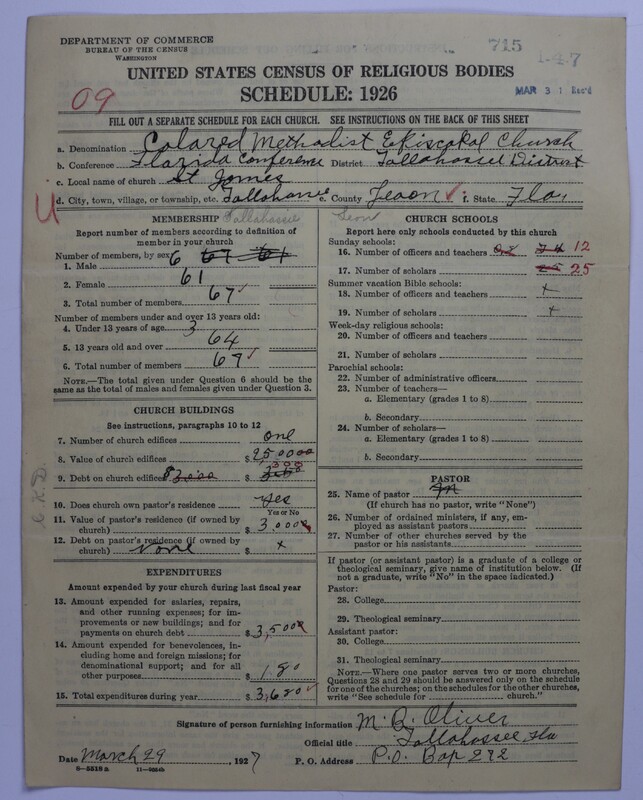 DEPARTMENT OF COMMERCE
BUREAU OF THE CENSUS
WASHINGTON
715
147
MAR 31 Rec'd
UNITED STATES CENSUS OF RELIGIOUS BODIES
SCHEDULE: 1926
09
FILL OUT A SEPARATE SCHEDULE FOR EACH CHURCH. SEE INSTRUCTIONS ON THE BACK OF THIS SHEET
a. Denomination Colored Methodist Episcopal Church
b. Conference Florida Conference District Tallahassee District
c. Local name of church St James
d. City, town, village, or township, etc. Tallahassee e. County Leon ✓ f. State Fla
U
Tallahassee Leon
MEMBERSHIP
Report number of members according to definition of
member in your church
Number of members, by sex:
1. Male 6
2. Female 61
3. Total number of members 67 ✓
Number of members under and over 13 years old:
4. Under 13 years of age 3
5. 13 years old and over 64
6. Total number of members 67 ✓
NOTE.—The total given under Question 6 should be the
same as the total of males and females given under Question 3.
CHURCH BUILDINGS
See instructions, paragraphs 10 to 12
7. Number of church edifices one
8. Value of church edifices $
9. Debt on church edifices $ 300
10. Does church own pastor's residence yes
Yes or No
11. Value of pastor's residence (if owned by
church) $ 3,000
12. Debt on pastor's residence (if owned by
church) none $ x
C.K.D.
EXPENDITURES
Amount expended by your church during last fiscal year
13. Amount expended for salaries, repairs,
and other running expenses; for im-
provements or new buildings; and for
payments on church debt $ 3,500
14. Amount expended for benevolences, in-
cluding home and foreign missions; for
denominational support; and for all
other purposes $ 180
15. Total expenditures during year $ 3,680 ✓
CHURCH SCHOOLS
Report here only schools conducted by this church
Sunday schools:
16. Number of officers and teachers 12
17. Number of scholars 25
Summer vacation Bible schools:
18. Number of officers and teachers x
19. Number of scholars x
Week-day religious schools:
20. Number of officers and teachers
21. Number of scholars
Parochial schools:
22. Number of administrative officers
23. Number of teachers—
a. Elementary (grades 1 to 8)
b. Secondary
24. Number of scholars—
a. Elementary (grades 1 to 8)
b. Secondary
PASTOR
25. Name of pastor
(If church has no pastor, write "None")
26. Number of ordained ministers, if any, em-
ployed as assistant pastors
27. Number of other churches served by the
pastor or his assistants
If pastor (or assistant pastor) is a graduate of a college or
theological seminary, give name of institution below. (If
not a graduate, write "No" in the space indicated.)
Pastor:
28. College
29. Theological seminary
Assistant pastor:
30. College
31. Theological seminary
NOTE.—Where one pastor serves two or more churches,
Questions 28 and 29 should be answered only on the schedule
for one of the churches; on the schedules for the other churches,
write "See schedule for church."
Signature of person furnishing information M. Q. Oliver
Official title Tallahassee Fla
Date March 29, 1927 P. O. Address P.O. Box 272
8—5518 a 11—9264b